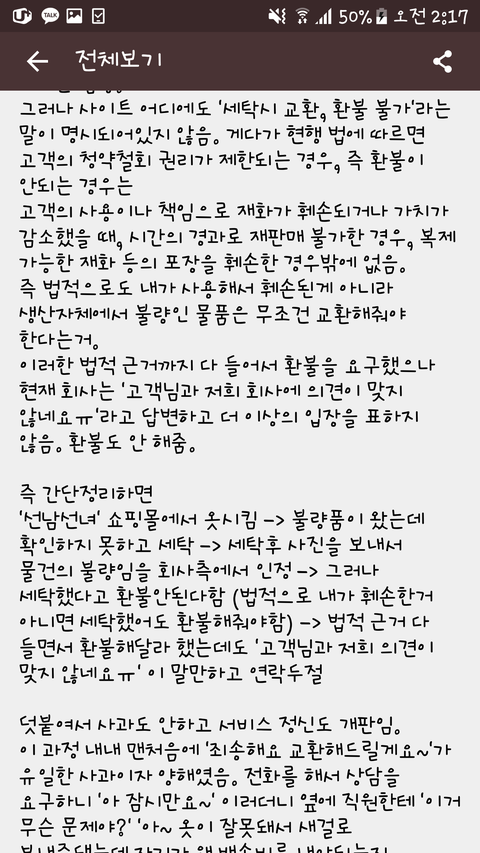 U+ TALK 50% 오전 2:17
전체보기
그러나 사이트 어디에도 '세탁시 교환, 환불 불가'라는
말이 명시되어있지 않음. 게다가 현행 법에 따르면
고객의 청약철회 권리가 제한되는 경우, 즉 환불이
안되는 경우는
고객의 사용이나 책임으로 재화가 훼손되거나 가치가
감소했을 때, 시간의 경과로 재판매 불가한 경우, 복제
가능한 재화 등의 포장을 훼손한 경우밖에 없음.
즉 법적으로도 내가 사용해서 훼손된게 아니라
생산자체에서 불량인 물품은 무조건 교환해줘야
한다는거.
이러한 법적 근거까지 다 들어서 환불을 요구했으나
현재 회사는 '고객님과 저희 회사에 의견이 맞지
않네요ㅠ'라고 답변하고 더 이상의 입장을 표하지
않음. 환불도 안 해줌.
즉 간단정리하면
'선남선녀' 쇼핑몰에서 옷시킴 -> 불량품이 왔는데
확인하지 못하고 세탁 -> 세탁후 사진을 보내서
물건의 불량임을 회사측에서 인정 -> 그러나
세탁했다고 환불안된다함 (법적으로 내가 훼손한거
아니면 세탁했어도 환불해줘야함) -> 법적 근거 다
들면서 환불해달라 했는데도 '고객님과 저희 의견이
맞지 않네요ㅠ' 이 말만하고 연락두절
덧붙여서 사과도 안하고 서비스 정신도 개판임.
이 과정 내내 맨처음에 '죄송해요 교환해드릴게요~'가
유일한 사과이자 양해였음. 전화를 해서 상담을
요구하니 '아 잠시만요~' 이러더니 옆에 직원한테 '이거
무슨 문제야?' '아~ 옷이 잘못돼서 새걸로